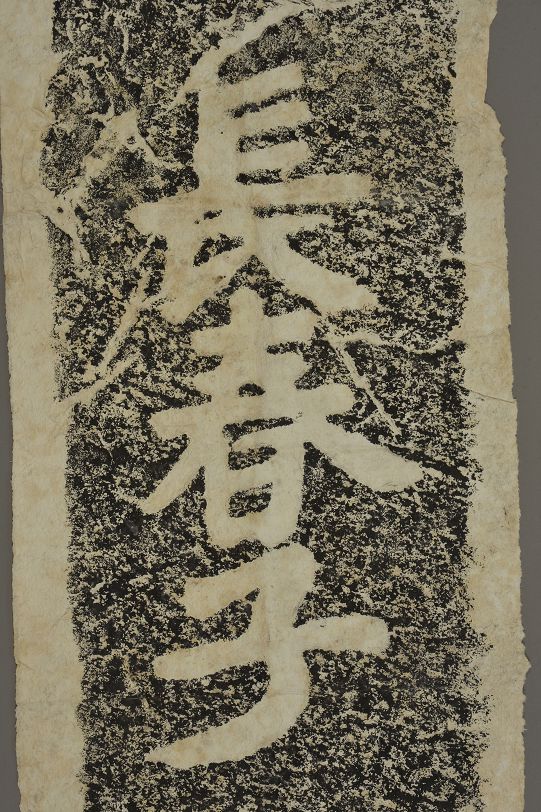 長春子